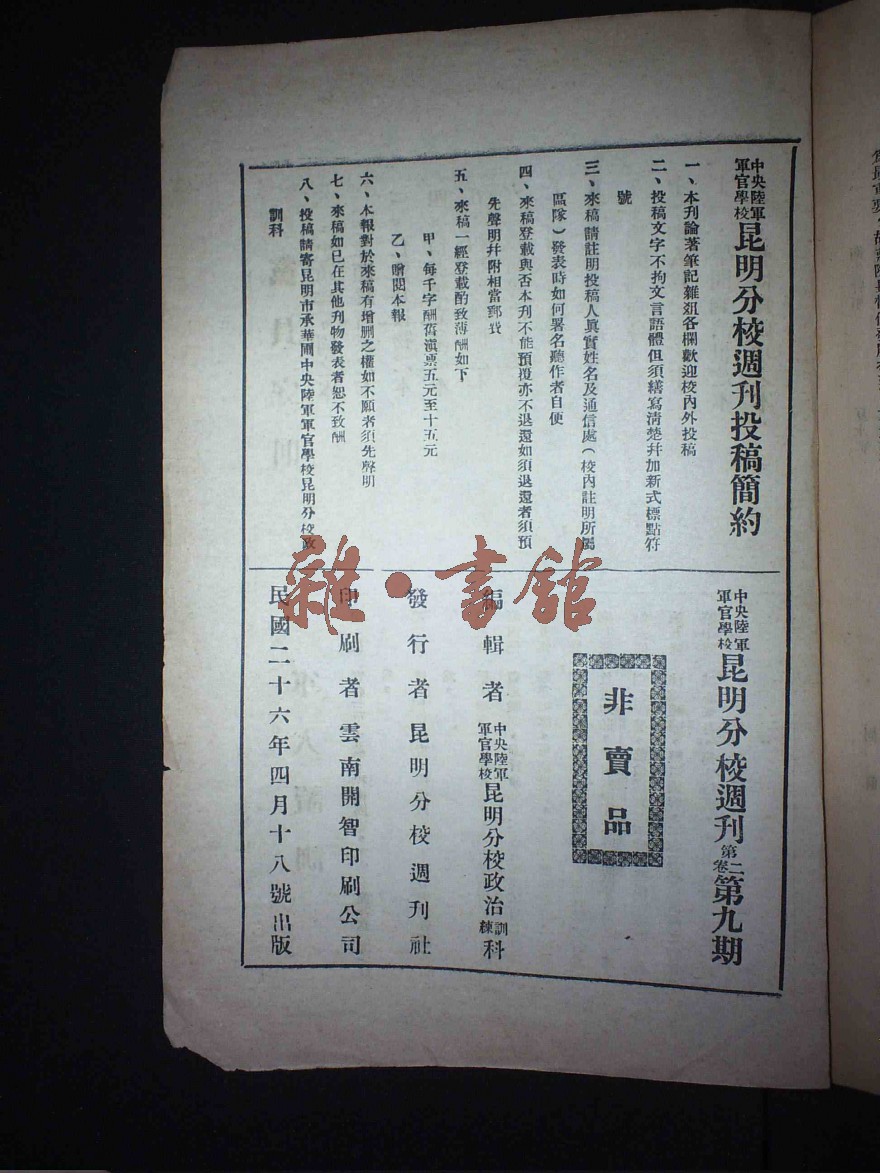 中央陸軍軍官學校昆明分校週刊投稿簡約
一、本刊論著筆記雜俎各欄歡迎校內外投稿
二、投稿文字不拘文言語體但須繕寫清楚幷加新式標點符
號
三、來稿請註明投稿人眞實姓名及通信處（校內註明所屬
區隊）發表時如何署名聽作者自便
四、來稿登載與否本刊不能預覆亦不退還如須退還者須預
先聲明幷附相當郵費
五、來稿一經登載酌致薄酬如下
甲、每千字酬舊滇票五元至十五元
乙、贈閱本報
六、本報對於來稿有增删之權如不願者須先聲明
七、來稿如已在其他刊物發表者恕不致酬
八、投稿請寄昆明市承華圃中央陸軍軍官學校昆明分校政
訓科
中央陸軍軍官學校昆明分校週刊第二卷第九期
非賣品
編輯者 中央陸軍軍官學校昆明分校政治訓練科
發行者昆明分校週刊社
印刷者雲南開智印刷公司
民國二十六年四月十八號出版
雜·書館